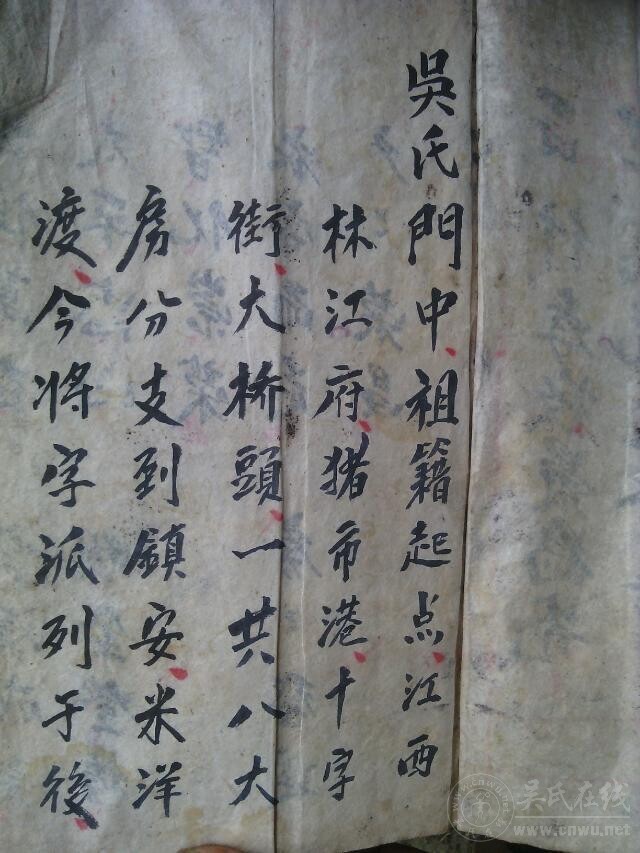 吳氏門中、祖籍起点、江西
林江府、猪市港、十字
街、大桥頭、一共八大
房分支到鎮安、米洋
渡、今将字派列于後、
吴氏在线
www.cnwu.net